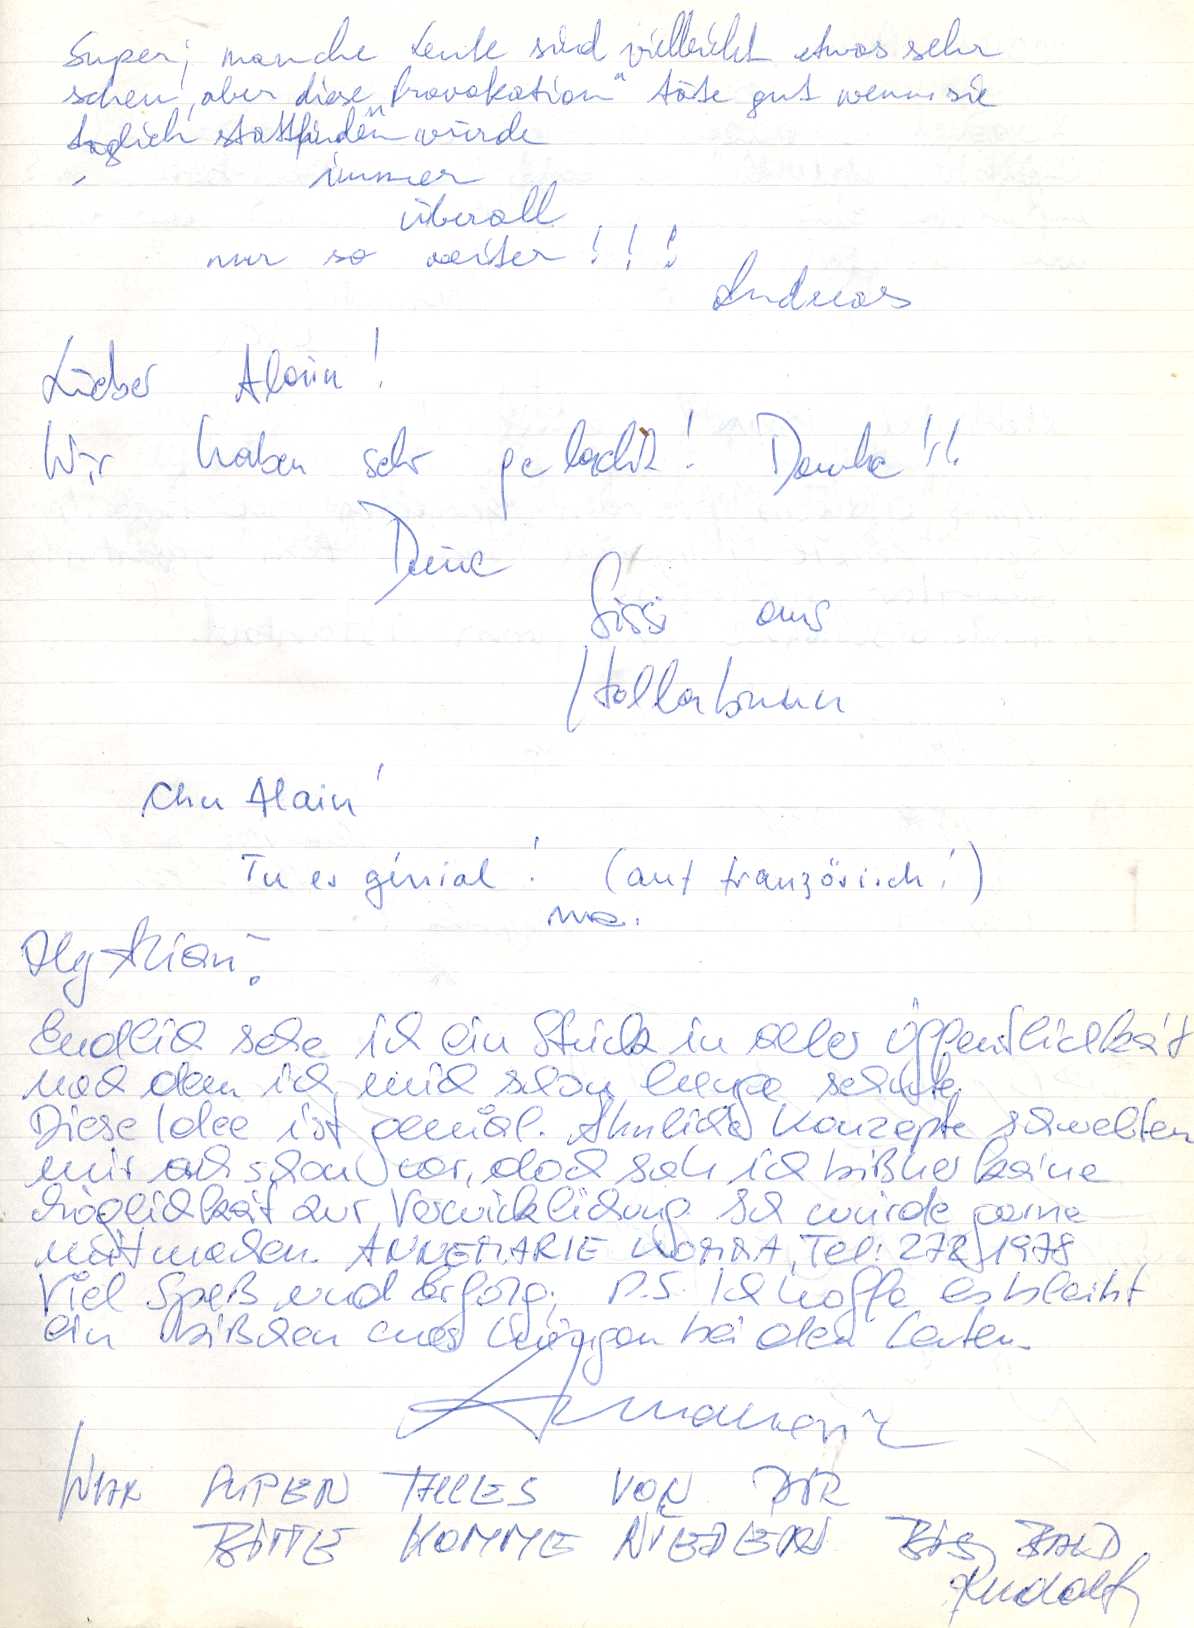 Super, manche Leute sind vielleicht etwas sehr
scheu, aber diese "Provokation" täte gut wenn sie
täglich stattfinden würde
immer
überall
nur so weiter!!!
Andreas
Lieber Alain!
Wir haben sehr gelacht! Danke!!!
Deine
Sissi aus
Hollabrunn
Cher Alain!
Tu es génial! (auf französisch!)
Hey Alian!
Endlich sehe ich ein Stück in aller Öffentlichkeit
nach dem ich mich schon lange sehnte.
Diese Idee ist genial. Ähnliche Konzepte schwebten
mir auch schon vor, doch sah ich bißher keine
Möglichkeit zur Verwirklichung. Ich würde gerne
mitmachen. ANNEMARIE Tel: 272 1978
Viel Spaß und Erfolg; P.S. Ich hoffe es bleibt
ein bißchen was hängen bei den Leuten.
Annemarie
WAR SUPER TALLES VON DIR
BITTE KOMME WIEDER BIS BALD
Rudolf